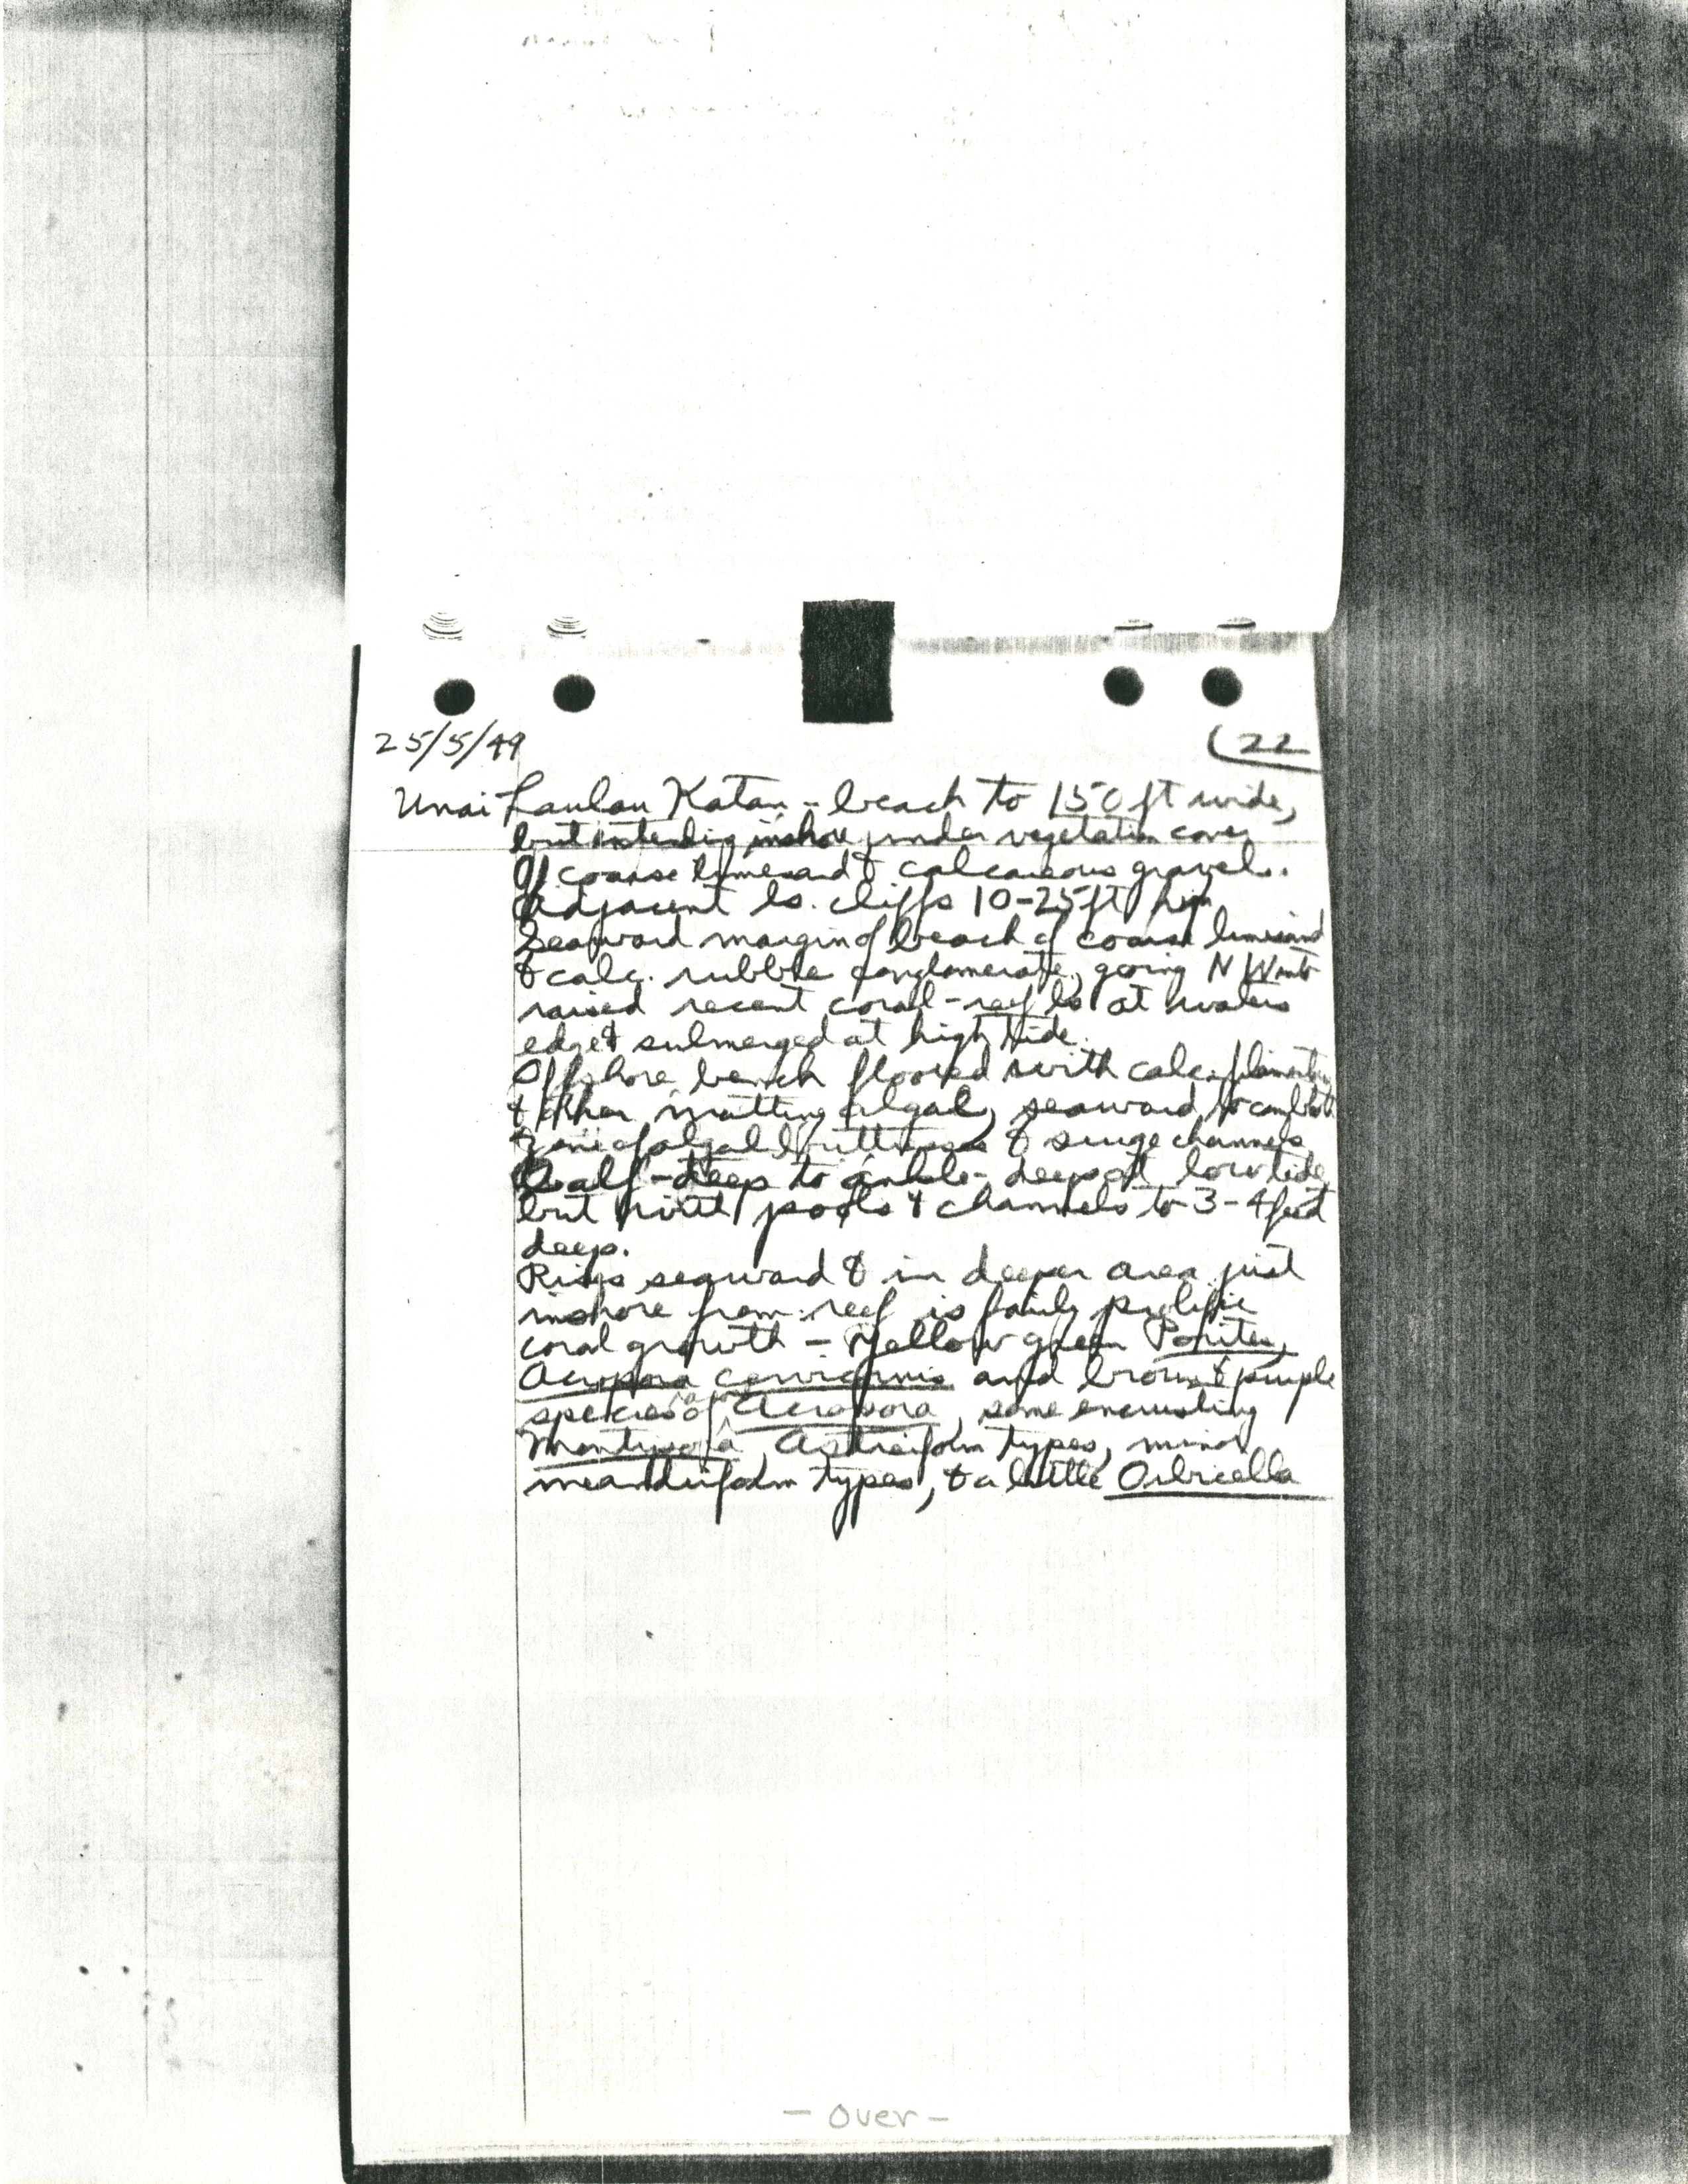 25/5/49
(22
Unai Laulau Katan - beach to 150 ft wide,
but extending inshore under vegetation cover
Of coarse limesand & calcareous gravel.
Adjacent ls. cliffs 10-25 ft high
Seaward margin of beach of coarse limesand
& calc. rubble conglomerate, going NW into
raised recent coral-reef ls at waters
edge & submerged at high tide.
Offshore bench floored with calc. filamentous
& other matting algal, seaward to
zone of algal buttresses & surge channels
Calf-deep to ankle-deep at low tide
but with pools & channels to 3-4 feet
deep.
Rises seaward & in deeper area just
inshore from reef is fairly prolific
coral growth - Yellow green Porites,
Acropora cervicornis and brown & purple
species of Acropora, some encrusting
Montipora, Astreiform types, minor
meandriform types, & a little Orbicella
- over -